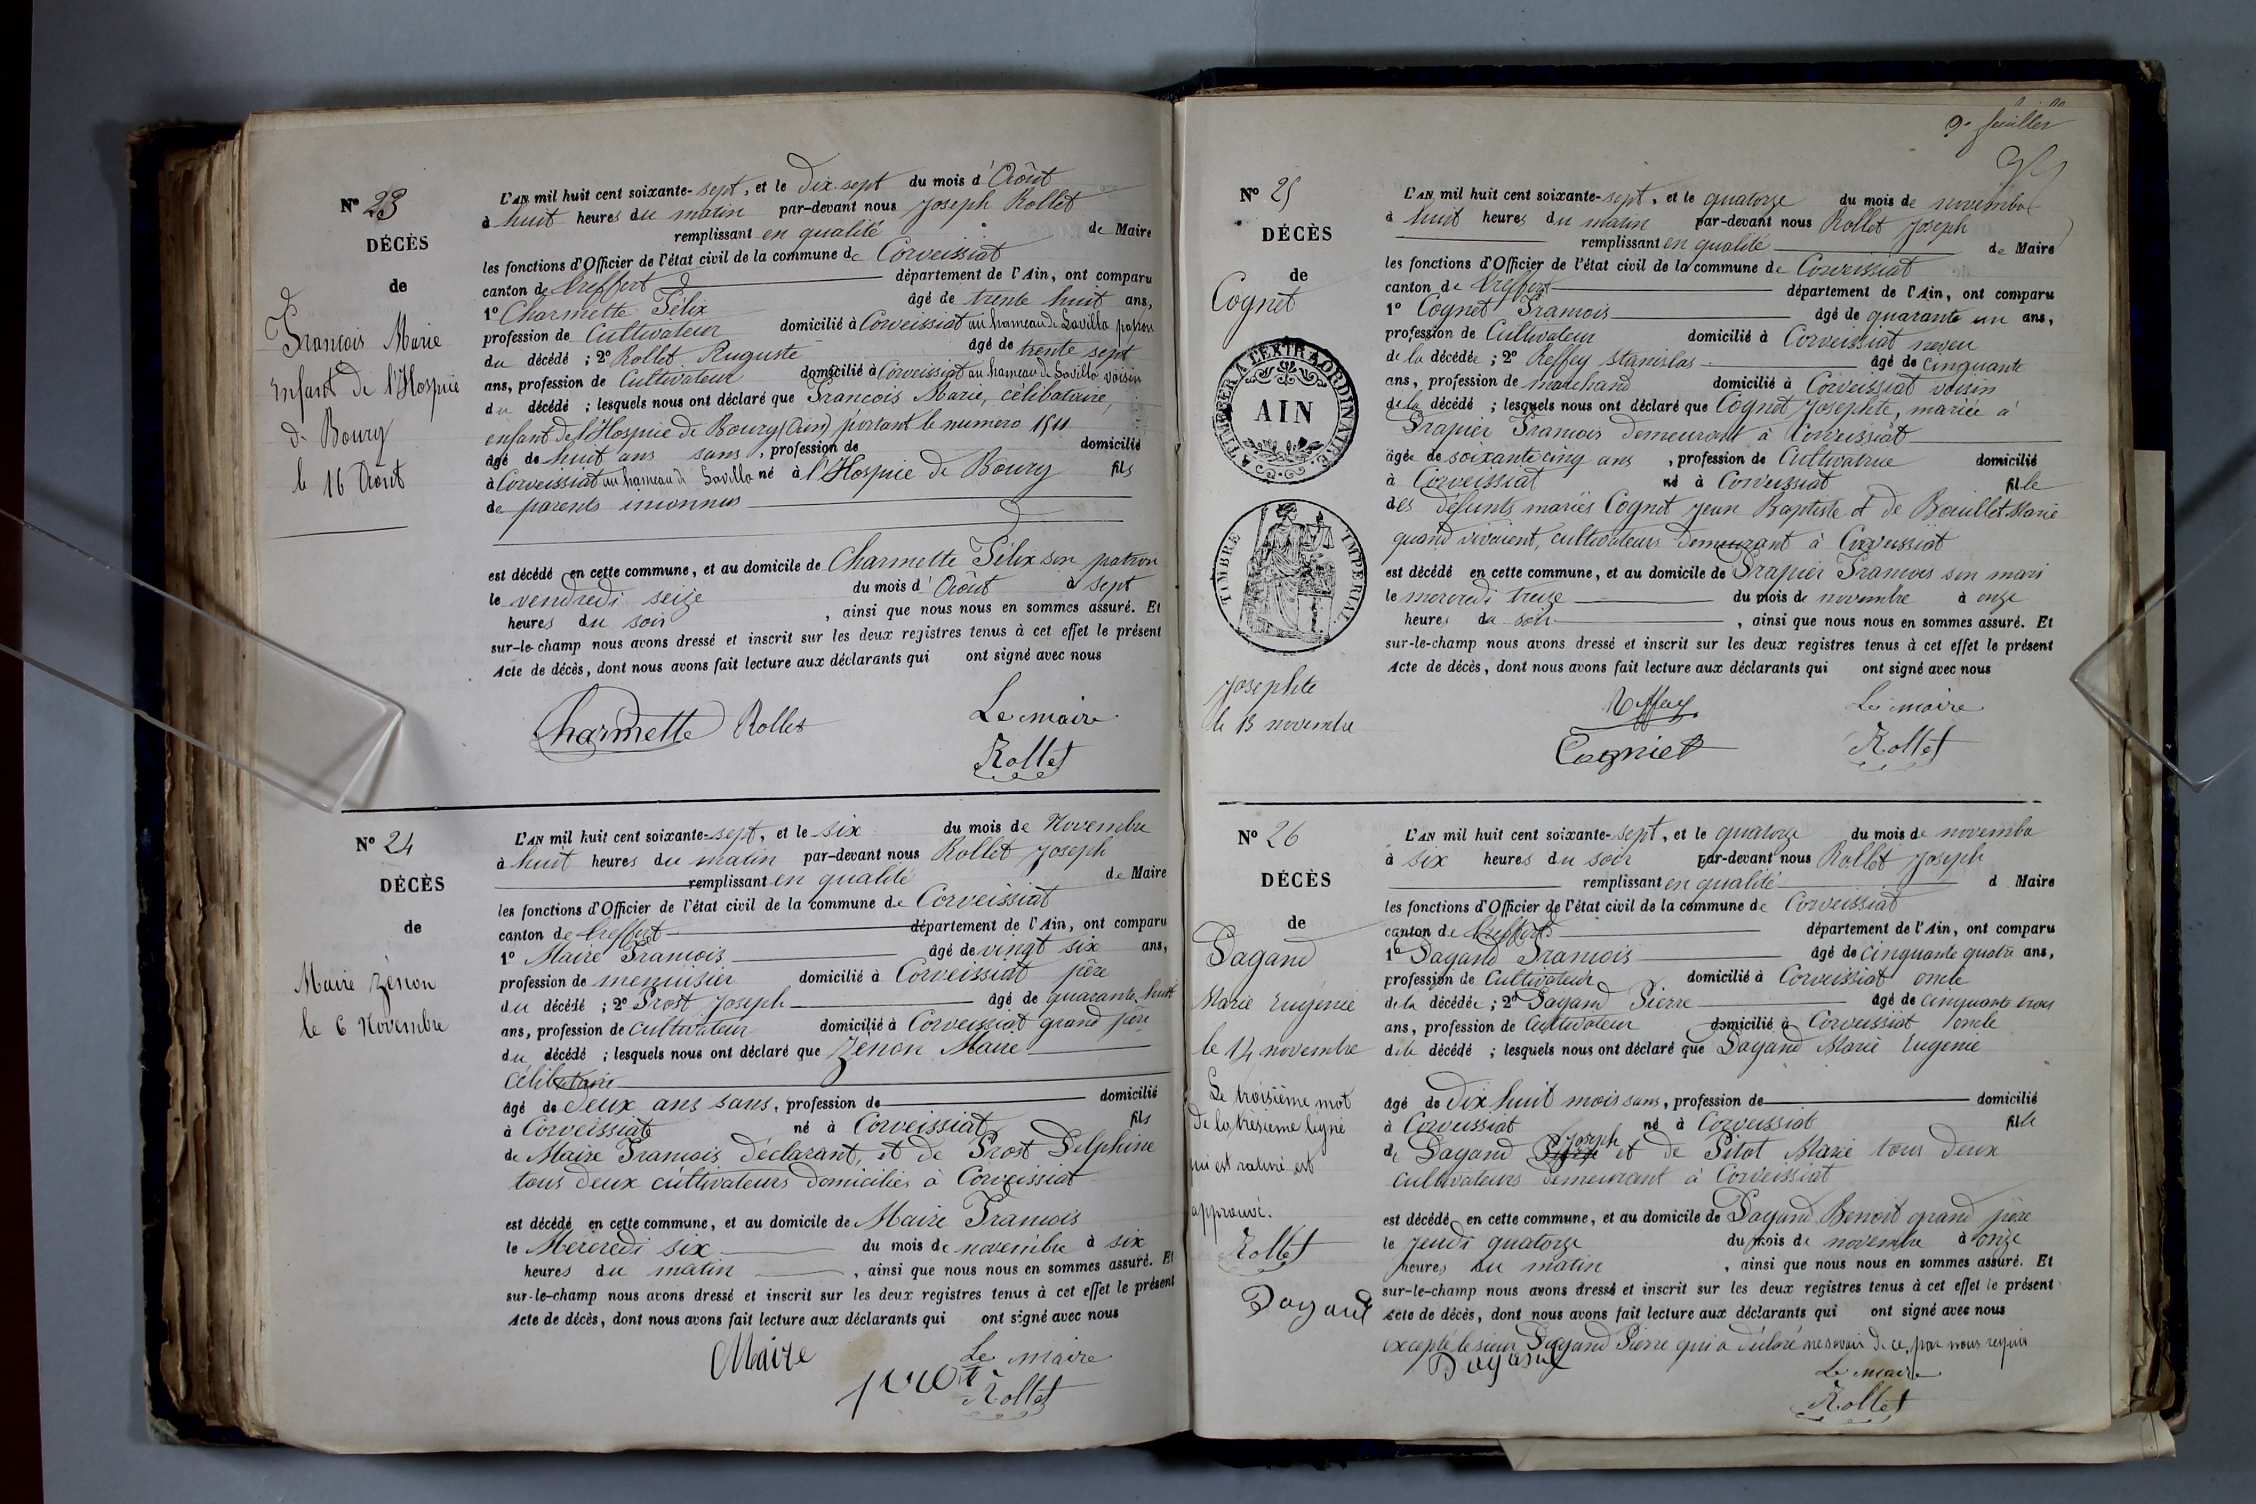 Nº 23
DÉCÈS
de
Francois Marie
Enfant de l'Hospice
de Bourg
le 16 Août
L'AN mil huit cent soixante-sept, et le dix sept du mois d'Août
à huit heures du matin par-devant nous Joseph Rollet
remplissant en qualité de Maire
les fonctions d'Officier de l'état civil de la commune de Corveissiat
canton de Treffort département de l'Ain, ont comparu
1º Charmette Félix âgé de trente huit ans,
profession de Cultivateur domicilié à Corveissiat au hameau de Lavilla patron
du décédé ; 2º Rollet Auguste âgé de trente sept
ans, profession de Cultivateur domicilié à Corveissiat au hameau de Lavilla voisin
du décédé ; lesquels nous ont déclaré que Francois Marie, célibataire,
enfant de l'Hospice de Bourg (Ain) portant le numero
âgé de huit ans sans, profession de domicilié
à Corveissiat au hameau de Lavilla né à l'Hospice de Bourg fils
de parents inconnus
est décédé en cette commune, et au domicile de Charmette Félix son patron
le vendredi seize du mois d'Août à sept
heures du soir, ainsi que nous nous en sommes assuré. Et
sur-le-champ nous avons dressé et inscrit sur les deux registres tenus à cet effet le présent
Acte de décès, dont nous avons fait lecture aux déclarants qui ont signé avec nous
Charmette Rollet Le maire
Rollet
Nº 24
DÉCÈS
de
Maire Zénon
le 6 Novembre
L'AN mil huit cent soixante-sept, et le six du mois de Novembre
à huit heures du matin par-devant nous Rollet Joseph
remplissant en qualité de Maire
les fonctions d'Officier de l'état civil de la commune de Corveissiat
canton de Treffort département de l'Ain, ont comparu
1º Maire Francois âgé de vingt six ans,
profession de menuisier domicilié à Corveissiat père
du décédé ; 2º Prost Joseph âgé de quarante huit
ans, profession de Cultivateur domicilié à Corveissiat grand père
du décédé ; lesquels nous ont déclaré que Zénon Maire
célibataire
âgé de deux ans sans, profession de domicilié
à Corveissiat né à Corveissiat fils
de Maire Francois déclarant, et de Prost Delphine
tous deux cultivateurs domiciliés à Corveissiat
est décédé en cette commune, et au domicile de Maire Francois
le Mercredi six du mois de novembre à six
heures du matin, ainsi que nous nous en sommes assuré. Et
sur-le-champ nous avons dressé et inscrit sur les deux registres tenus à cet effet le présent
Acte de décès, dont nous avons fait lecture aux déclarants qui ont signé avec nous
Maire Le maire
prost Rollet
9e feuillet
Nº 25
DÉCÈS
de
Cognet
A TIMBRER A L'EXTRAORDINAIRE
AIN
TIMBRE IMPERIAL
Josephte
le 13 novembre
L'AN mil huit cent soixante-sept, et le quatorze du mois de novembre
à huit heures du matin par-devant nous Rollet Joseph
remplissant en qualité de Maire
les fonctions d'Officier de l'état civil de la commune de Corveissiat
canton de Treffort département de l'Ain, ont comparu
1º Cognet Francois âgé de quarante un ans,
profession de Cultivateur domicilié à Corveissiat neveu
de la décédée ; 2º Reffay Stanislas âgé de cinquante
ans, profession de marchand domicilié à Corveissiat voisin
de la décédé ; lesquels nous ont déclaré que Cognet Josephte, mariée à
Drapier Francois demeurant à Corveissiat
âgée de soixante cinq ans, profession de Cultivatrice domicilié
à Corveissiat né à Corveissiat fille
des défunts mariés Cognet Jean Baptiste et de Bouillet Marie
quand vivaient, cultivateurs demeurant à Corveissiat
est décédé en cette commune, et au domicile de Drapier Francois son mari
le mercredi treize du mois de novembre à onze
heures du soir, ainsi que nous nous en sommes assuré. Et
sur-le-champ nous avons dressé et inscrit sur les deux registres tenus à cet effet le présent
Acte de décès, dont nous avons fait lecture aux déclarants qui ont signé avec nous
Reffay Le maire
Cogniet Rollet
Nº 26
DÉCÈS
de
Dagand
Marie Eugénie
le 14 novembre
Le troisième mot
de la treisième ligne
qui est raturé est
approuvé.
Rollet
Dagand
L'AN mil huit cent soixante-sept, et le quatorze du mois de novembre
à six heures du soir par-devant nous Rollet Joseph
remplissant en qualité d Maire
les fonctions d'Officier de l'état civil de la commune de Corveissiat
canton de Treffort département de l'Ain, ont comparu
1º Dagand Francois âgé de cinquante quatre ans,
profession de Cultivateur domicilié à Corveissiat oncle
de la décédée ; 2º Dagand Pierre âgé de cinquante trois
ans, profession de Cultivateur domicilié à Corveissiat oncle
de la décédé ; lesquels nous ont déclaré que Dagand Marie Eugénie
âgé de dix huit mois sans, profession de domicilié
à Corveissiat né à Corveissiat fille
de Dagand Joseph et de Pitot Marie tous deux
cultivateurs demeurant à Corveissiat
est décédé en cette commune, et au domicile de Dagand Benoit grand père
le jeudi quatorze du mois de novembre à onze
heures du matin, ainsi que nous nous en sommes assuré. Et
sur-le-champ nous avons dressé et inscrit sur les deux registres tenus à cet effet le présent
Acte de décès, dont nous avons fait lecture aux déclarants qui ont signé avec nous
excepté le sieur Dagand Pierre qui a déclaré ne savoir de ce par nous requis
Dagand Le maire
Rollet